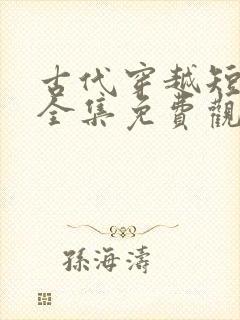 古代穿越短
全集免費觀
孫海濤